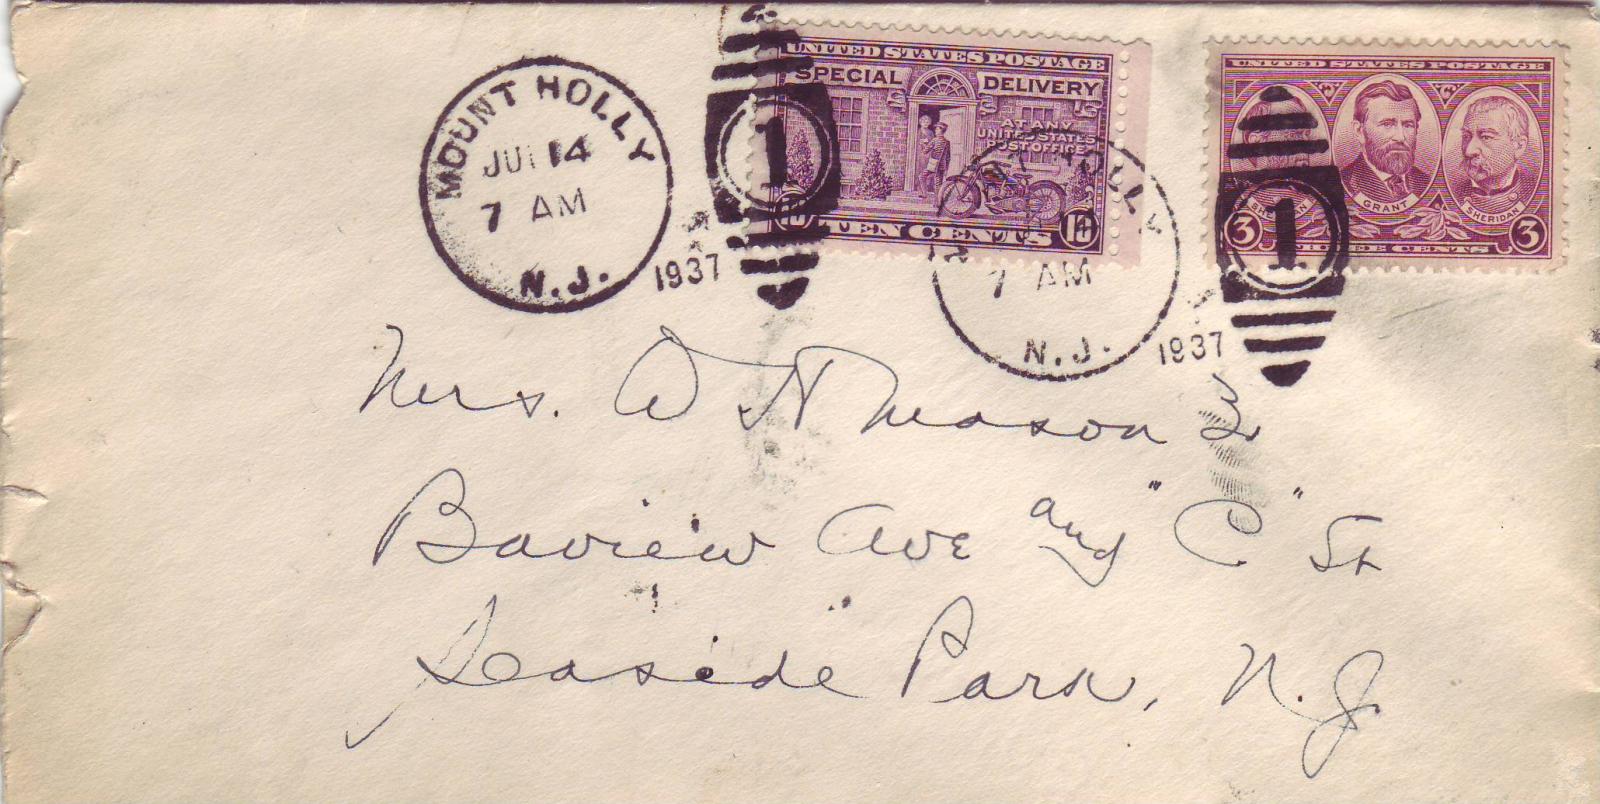 MOUNT HOLLY
JUL 14
7 AM
N.J.
1937
UNITED STATES POSTAGE
SPECIAL DELIVERY
AT ANY
UNITED STATES
POST OFFICE
10 TEN CENTS 10
1
HOLLY
7 AM
N.J.
1937
UNITED STATES POSTAGE
SHERMAN GRANT SHERIDAN
3 THREE CENTS 3
1
Mrs. W H Mason
Baview Ave and "C" St
Seaside Park, N.J.